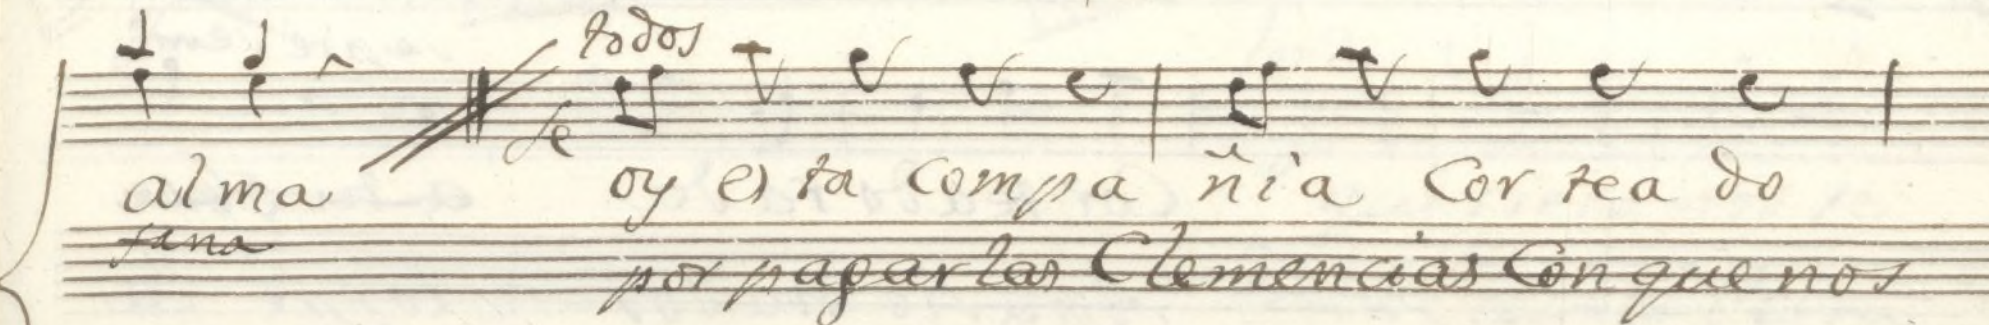 todos
Se
alma oy esta compa ñia Cor tea do
fana por pagar las Clemencias Con que nos